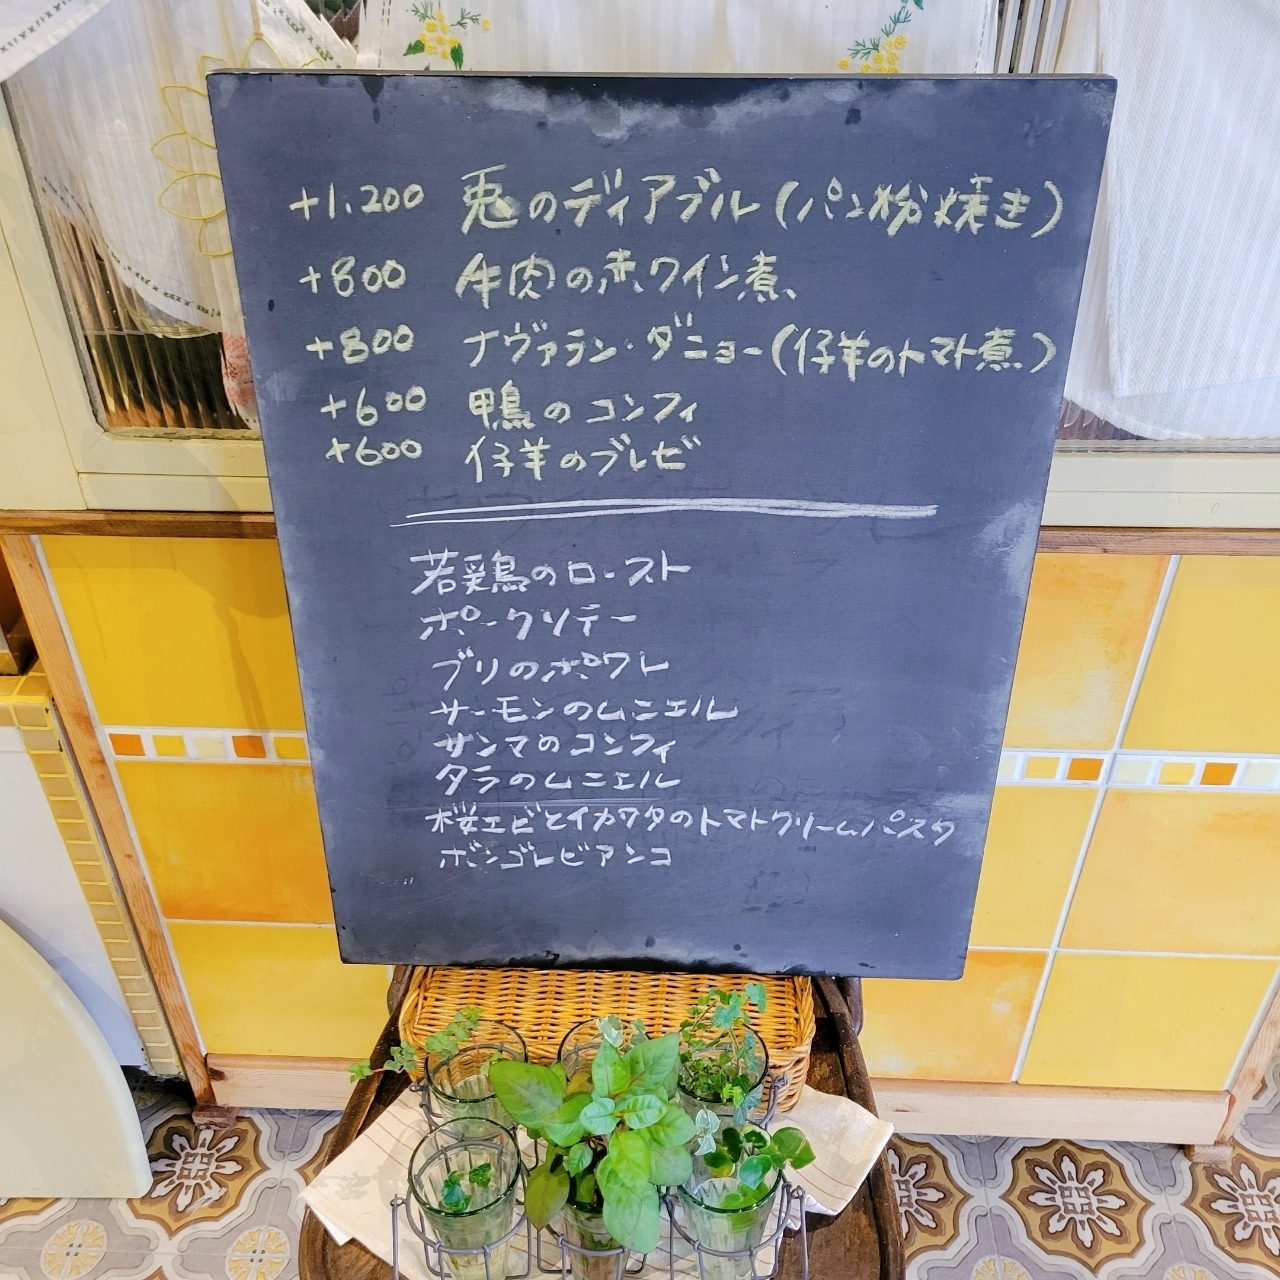 +1,200 兎のディアブル(パン粉焼き)
+800 牛肉の赤ワイン煮
+800 ナヴァラン・ダニョー(仔羊のトマト煮)
+600 鴨のコンフィ
+600 仔羊のブレゼ
若鶏のロースト
ポークソテー
ブリのポワレ
サーモンのムニエル
サンマのコンフィ
タラのムニエル
桜エビとイカワタのトマトクリームパスタ
ボンゴレビアンコ